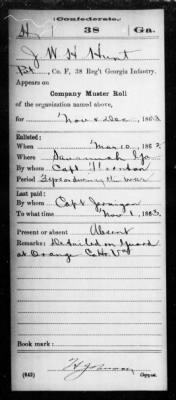 Confederate.
H 38 Ga.
J W H Hunt
Pvt, Co. F, 38 Reg't Georgia Infantry.
Appears on
Company Muster Roll
of the organization named above,
for Nov & Dec, 1863
Enlisted:
When May 10, 1862.
Where Savannah Ga
By whom Capt Thornton
Period 3 years or during the war
Last paid:
By whom Capt Jernigan
To what time Nov 1, 1863.
Present or absent Absent
Remarks: Detailed on Guard
at Orange C. H. Va
Book mark:
(642) Copyist.